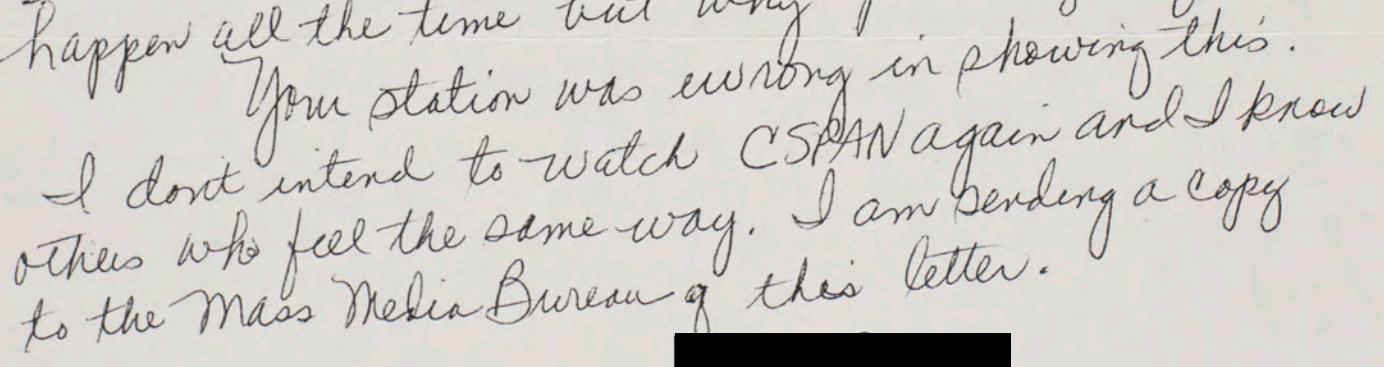 happen all the time but why
Your station was wrong in showing this.
I don't intend to watch CSPAN again and I know
others who feel the same way. I am sending a copy
to the Mass Media Bureau of this letter.